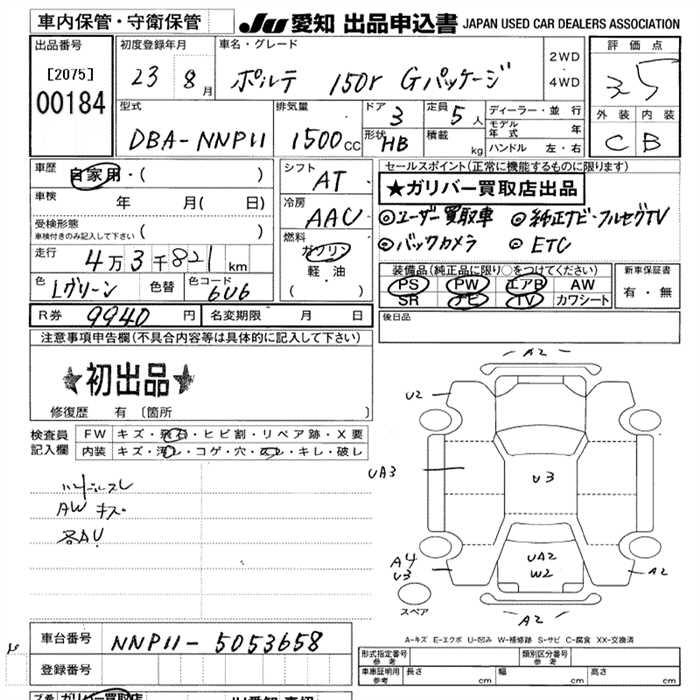 車内保管・守衛保管 JU 愛知 出品申込書 JAPAN USED CAR DEALERS ASSOCIATION
出品番号 初度登録年月 車名・グレード 評価点
[2075] 23 8月 ポルテ 150r Gパッケージ 2WD・4WD 3.5
00184
型式 排気量 ドア 3 定員 5人 ディーラー・並行 外装 内装
DBA-NNP11 1500cc 形状 HB 積載 kg モデル年式 年 C B
ハンドル 左・右
車歴 自家用・( ) シフト AT セールスポイント(正常に機能するものに限ります)
車検 年 月( 日) 冷房 AAC ★ガリバー買取店出品
受検形態 ( ) ◎ユーザー買取車 ◎純正ナビ・フルセグTV
車検付きのみ記入して下さい 燃料 ガソリン ◎バックカメラ ◎ETC
走行 4万3千821km 軽・油
色 Lグリーン 色替 色コード 6U6 ( )
装備品(純正品に限り○をつけてください) 新車保証書
PS PW エアB AW 有・無
SR ナビ TV カワシート
R券 9940円 名変期限 月 日 後日品
注意事項申告欄(不具合内容等は具体的に記入して下さい)
★初出品★
修復歴 有 〔箇所 〕
検査員記入欄 FW キズ・飛石・ヒビ割・リペア跡・X要
内装 キズ・汚レ・コゲ・穴・スレ・キレ・破レ
ハンドルスレ
AW キズ
各AU
A2
U2
UA3
U3
A4
U3
UA2
W2
A2
A2
スペア
A-キズ E-エクボ U-凹み W-補修跡 S-サビ C-腐食 XX-交換済
車台番号 NNP11-5053658
登録番号
形式指定番号 参考 類別区分番号 参考
車庫証明用 参考 長さ cm 幅 cm 高さ cm
ガリバー買取店 JU愛知